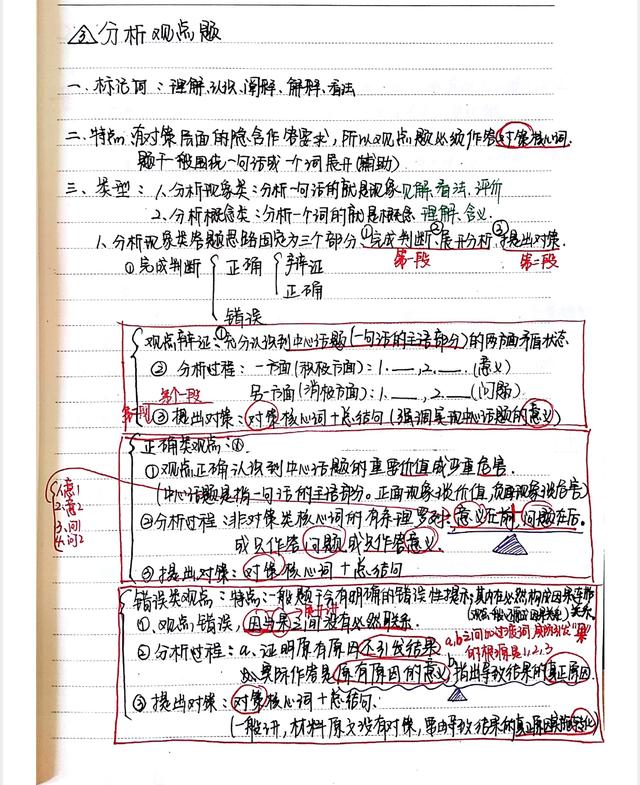 ③分析观点题
一、标志词：理解、认识、阐释、解释、看法
二、特点：有对策层面的隐含作答要求，所以观点题必须作答对策核心词.
题干一般围绕一句话或一个词展开(辅助)
三、类型：1、分析现象类：分析一句话的就是现象 见解、看法、评价
2、分析概念类：分析一个词的就是概念 理解、含义
1、分析现象类答题思路固定为三个部分、①完成判断、②展开分析、③提出对策.
第一段 第二段
①完成判断 正确 辩证
正确
错误
观点辩证：①充分认识到中心话题(一句话的主语部分)的两方面矛盾状态
② 分析过程：一方面(积极方面)：1.__,2.__(意义)
另一方面(消极方面)：1.__,2.__(问题)
第一段
③提出对策：对策核心词+总结句(强调实现中心话题的意义)
正确类观点：
①观点正确 认识到中心话题的重要价值或严重危害.
(中心话题是指一句话的主语部分。正面现象谈价值，负面现象谈危害)
1.意1
2.意2
3.问1
4.问2
②分析过程：非对策类核心词的有条理罗列：意义在前，问题在后。
或只作答问题或只作答意义.
③提出对策：对策核心词+总结句
错误类观点：特点：一般题干会有明确的错误性提示，
①、观点错误，因与果之间没有必然联系.
展开讲
②分析过程：a、证明原有原因不引发结果
a,b之间加过渡词
的根源是1,2,3
实际作答是原有原因的意义 b、指出导致结果的真正原因.
③提出对策：对策核心词+总结句.
(一般讲，材料原文没有对策，要由导致结果的真正原因